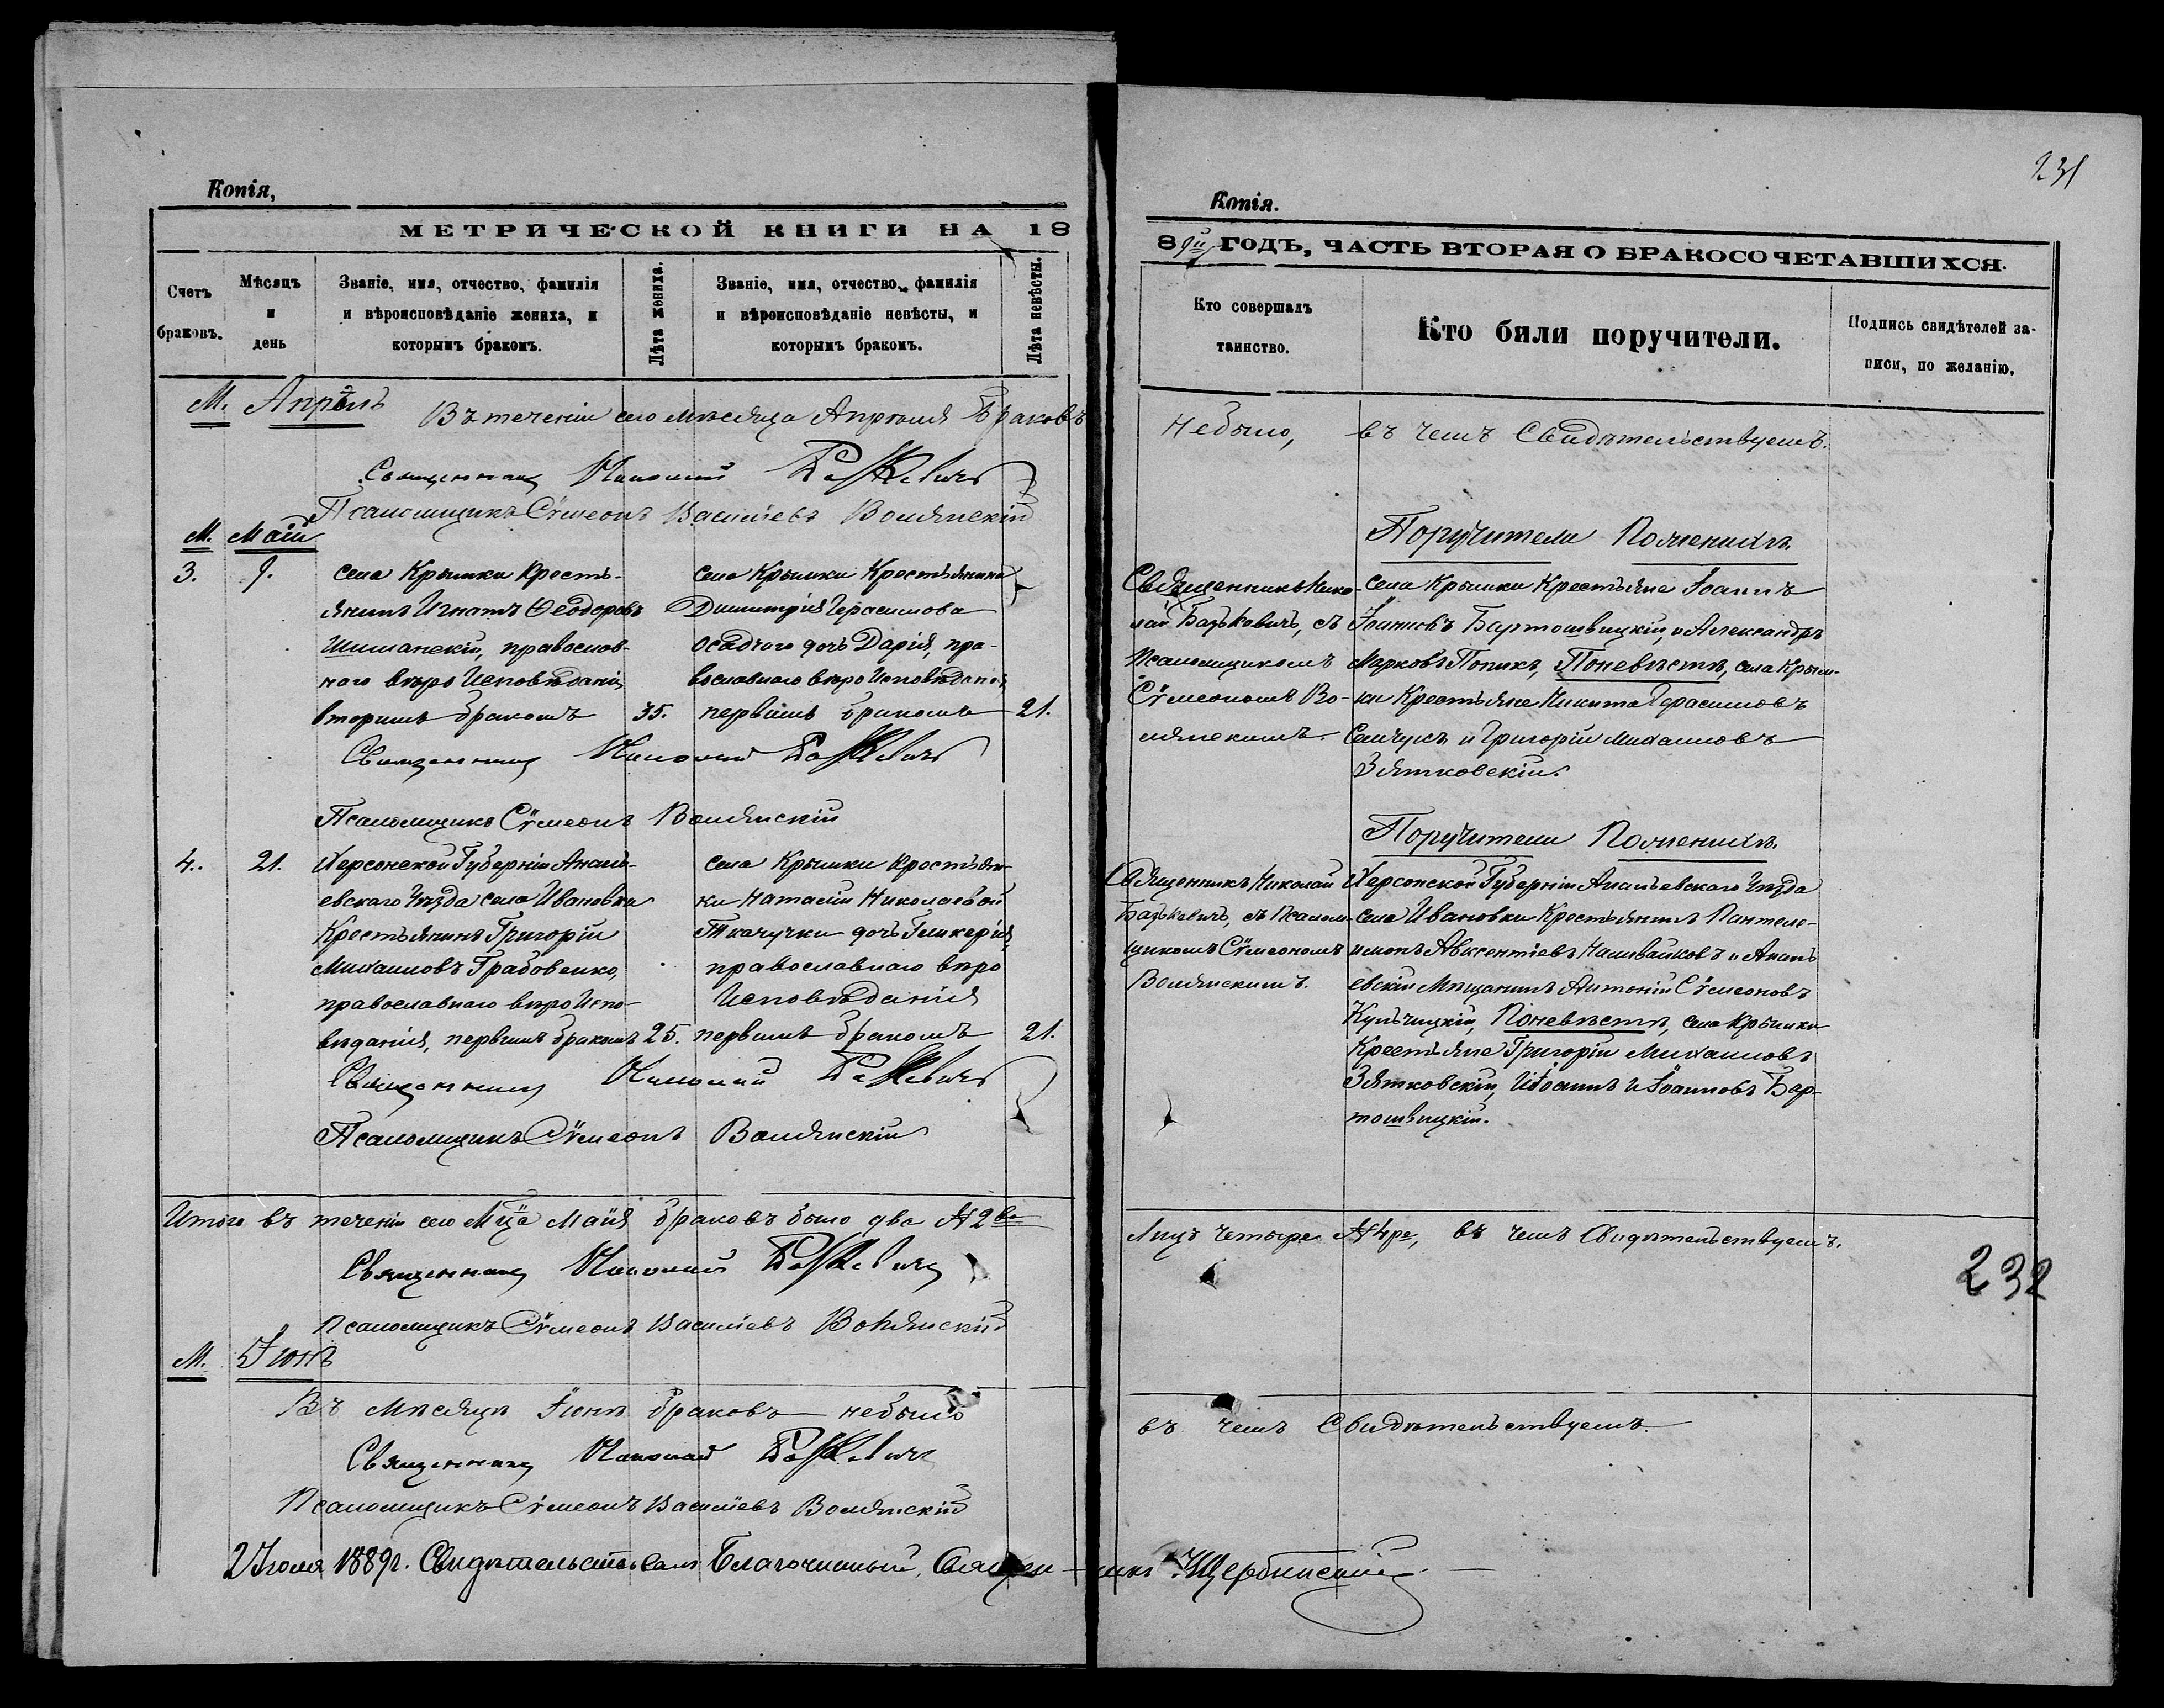 Копія,
МЕТРИЧЕСКОЙ КНИГИ НА 18
Счетъ браковъ.
Мѣсяцъ и день
Званіе, имя, отчество, фамилія
и вѣроисповѣданіе жениха, и
которымъ бракомъ.
Лѣта жениха.
Званіе, имя, отчество, фамилія
и вѣроисповѣданіе невѣсты, и
которымъ бракомъ.
Лѣта невѣсты.
М. Апрѣль
Въ теченіи сего мѣсяца Апрѣля Браковъ
Священникъ Николай Бацкевичъ
Псаломщикъ Сѵмеонъ Василіевъ Волянскій
М. Май
3. 9.
села Крымки Кресть-
янинъ Игнатъ Ѳеодоровъ
Шиманскій, православ-
наго вѣро Исповѣданія,
вторымъ бракомъ 35.
села Крымки Крестьянина
Димитрія Герасимова
Осадчаго дочь Дарія, пра-
вославнаго вѣро Исповѣданія,
первымъ бракомъ 21.
Священникъ Николай Бацкевичъ
Псаломщикъ Сѵмеонъ Волянскій
4. 21.
Херсонской Губерніи Анань-
евскаго Уѣзда села Ивановки
Крестьянинъ Григорій
Михаиловъ Грабовенко,
православнаго вѣро Испо-
вѣданія, первымъ бракомъ 25.
села Крымки Крестьян-
ки Наталіи Николаевой
Ткачучки дочь Гликерія,
православнаго вѣро
Исповѣданія
первымъ бракомъ 21.
Священникъ Николай Бацкевичъ
Псаломщикъ Сѵмеонъ Волянскій
Итого въ теченіи сего Мца Маія браковъ было два № 2ва
Священникъ Николай Бацкевичъ
Псаломщикъ Сѵмеонъ Василіевъ Волянскій
М. Іюнь
Въ Мѣсяцѣ Іюнѣ браковъ небыло
Священникъ Николай Бацкевичъ
Псаломщикъ Сѵмеонъ Василіевъ Волянскій
2 Іюля 1889г. Свидѣтельствовалъ Благочинный, Священ-
231
Копія.
89й ГОДЪ, ЧАСТЬ ВТОРАЯ О БРАКОСОЧЕТАВШИХСЯ.
Кто совершалъ
таинство.
Кто били поручители.
Подпись свидѣтелей за-
писи, по желанію.
Небыло, въ чемъ Свидѣтельствуемъ.
Поручители Поженихѣ.
Священникъ Нико-
лай Бацкевичъ, съ
Псаломщикомъ
Сѵмеономъ Во-
лянскимъ
села Крымки Крестьяне Іоаннъ
Іоанновъ Бартошвицкій, и Александръ
Марковъ Попикъ, Поневѣстѣ, села Крым-
ки Крестьяне Никита Герасимовъ
Семчукъ и Григорій Михаиловъ
Зятковскій.
Поручители Поженихѣ.
Священникъ Николай
Бацкевичъ, съ Псалом-
щикомъ Сѵмеономъ
Волянскимъ.
Херсонской Губерніи Ананьевскаго Уѣзда
села Ивановки Крестьянинъ Пантеле-
имонъ Авксентіевъ и Анань
евскій Мѣщанинъ Антоній Сѵмеоновъ
Кульчицкій, Поневѣстѣ, села Крымки
Крестьяне Григорій Михаиловъ
Зятковскій, и Іоаннъ Іоанновъ Бар-
тошвицкій.
Лицъ четыре № 4ре, въ чемъ Свидѣтельствуемъ.
232
въ чемъ Свидѣтельствуемъ.
никъ Щербинскій